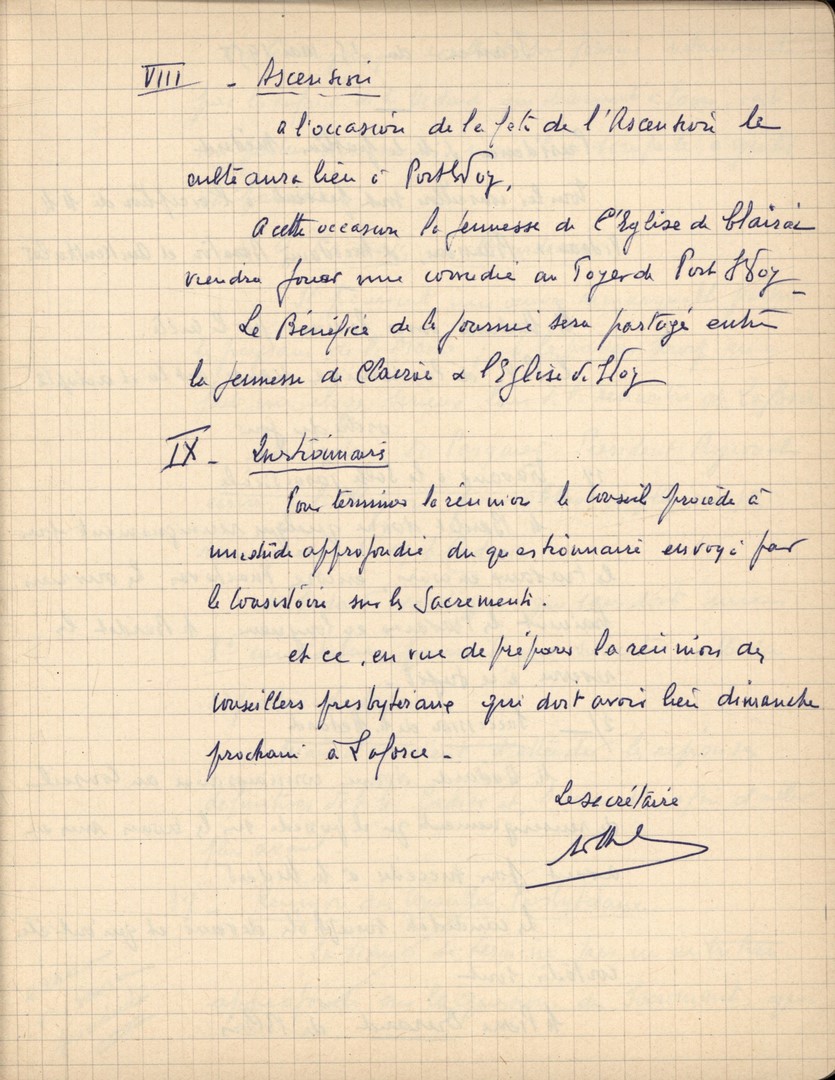 VIII - Ascension
a l'occasion de la fête de l'Ascension le
culte aura lieu à Port Ste Foy,
A cette occasion la jeunesse de l'Eglise de Clairac
viendra jouer une comédie au Foyer de Port Ste Foy -
Le Bénéfice de la journée sera partagé entre
la jeunesse de Clairac & l'Eglise de Ste Foy
IX - Questionnaire
Pour terminer la réunion le Conseil procède à
une étude approfondie du questionnaire envoyé par
le Consistoire sur les Sacrements.
et ce, en vue de préparer la réunion des
Conseillers presbytéraux qui doit avoir lieu dimanche
prochain à Laforce -
Le secrétaire